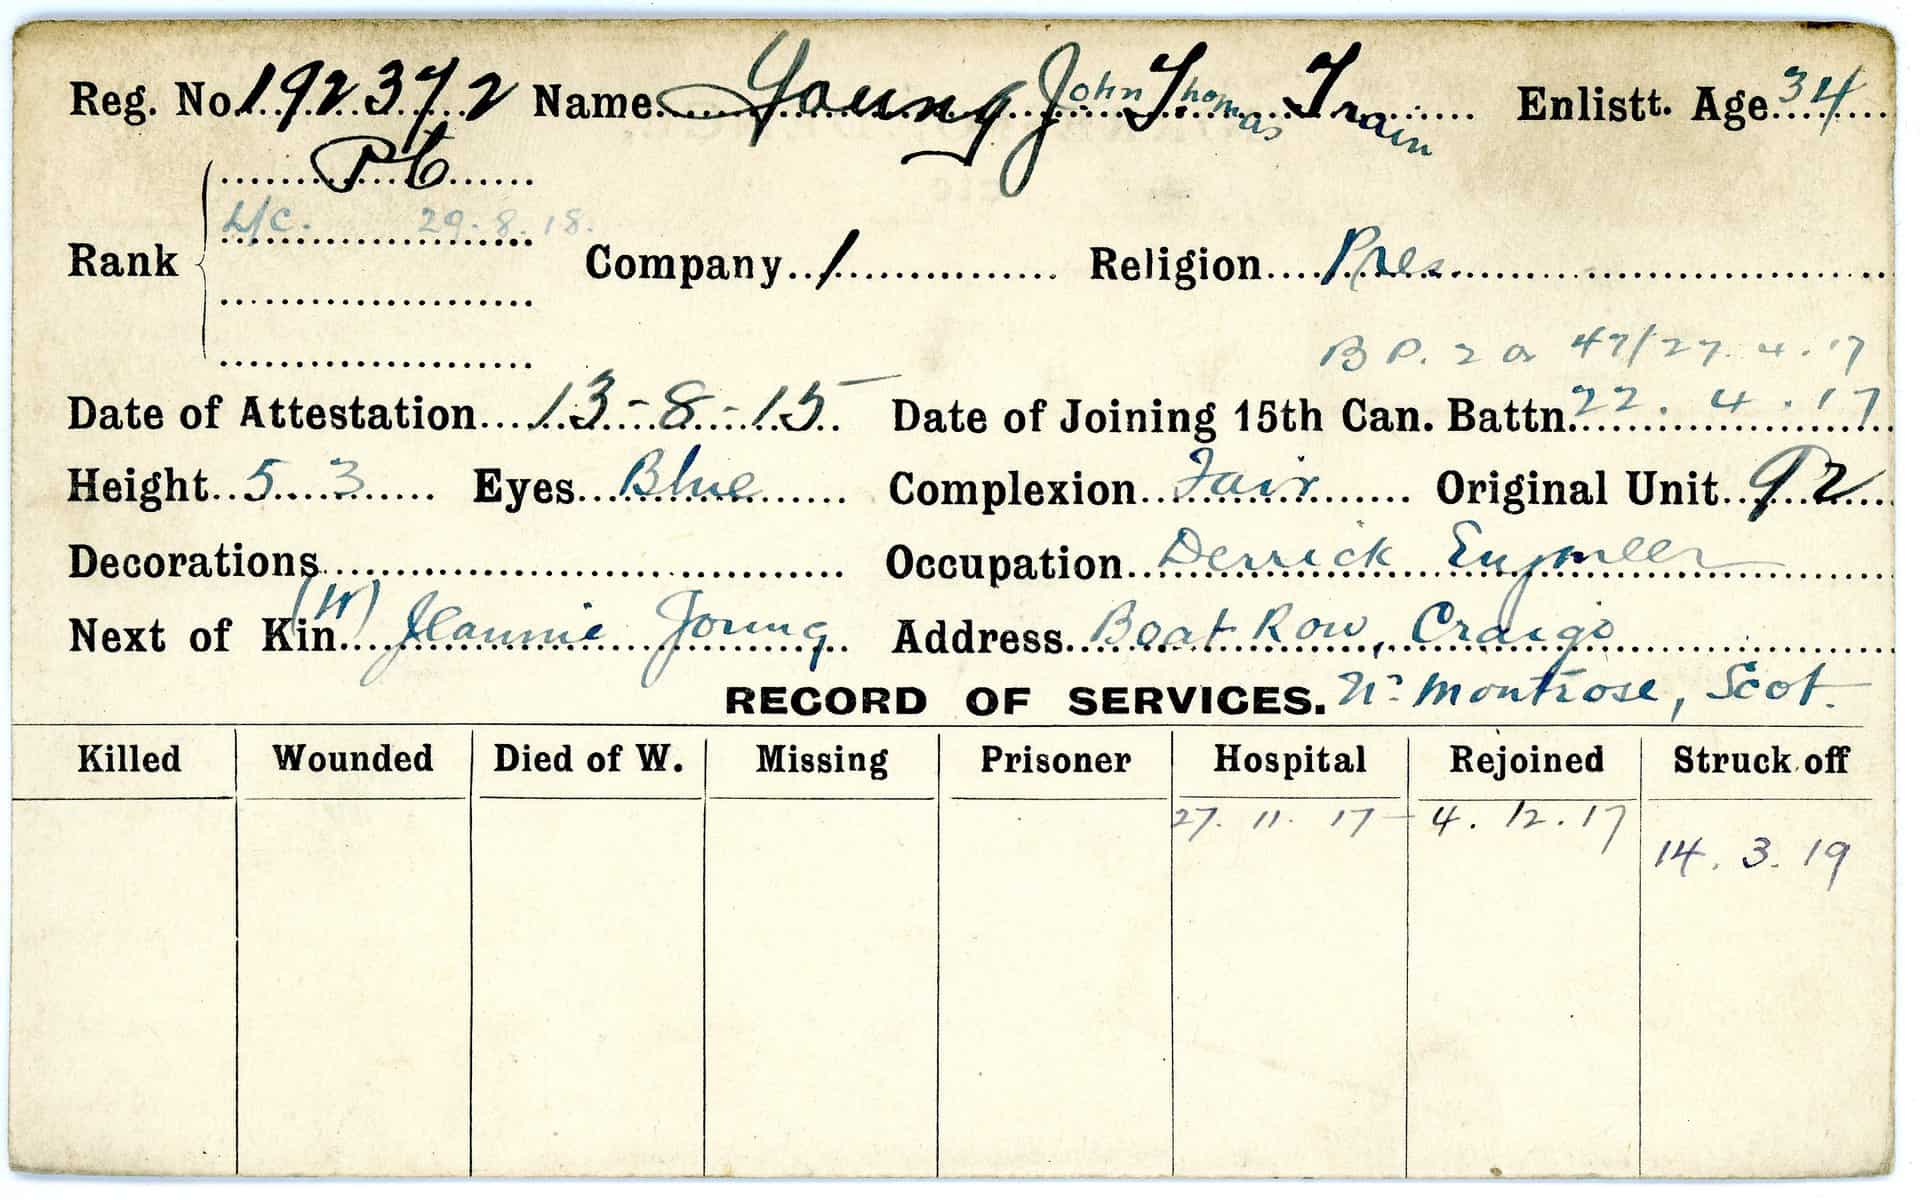 Reg. No. 192372 Name Young John Thomas Train Enlistt. Age 34
Pte
L/C. 29.8.18.
Rank Company 1 Religion Pres
B P. 2 47/27.4.17
Date of Attestation 13-8-15 Date of Joining 15th Can. Battn. 22.4.17
Height 5 3 Eyes Blue Complexion Fair Original Unit 92
Decorations Occupation Derrick Engineer
Next of Kin (W) Jeannie Young Address Boat Row, Craigo
RECORD OF SERVICES. Nr Montrose, Scot.
Killed Wounded Died of W. Missing Prisoner Hospital Rejoined Struck off
27.11.17 - 4.12.17
14.3.19